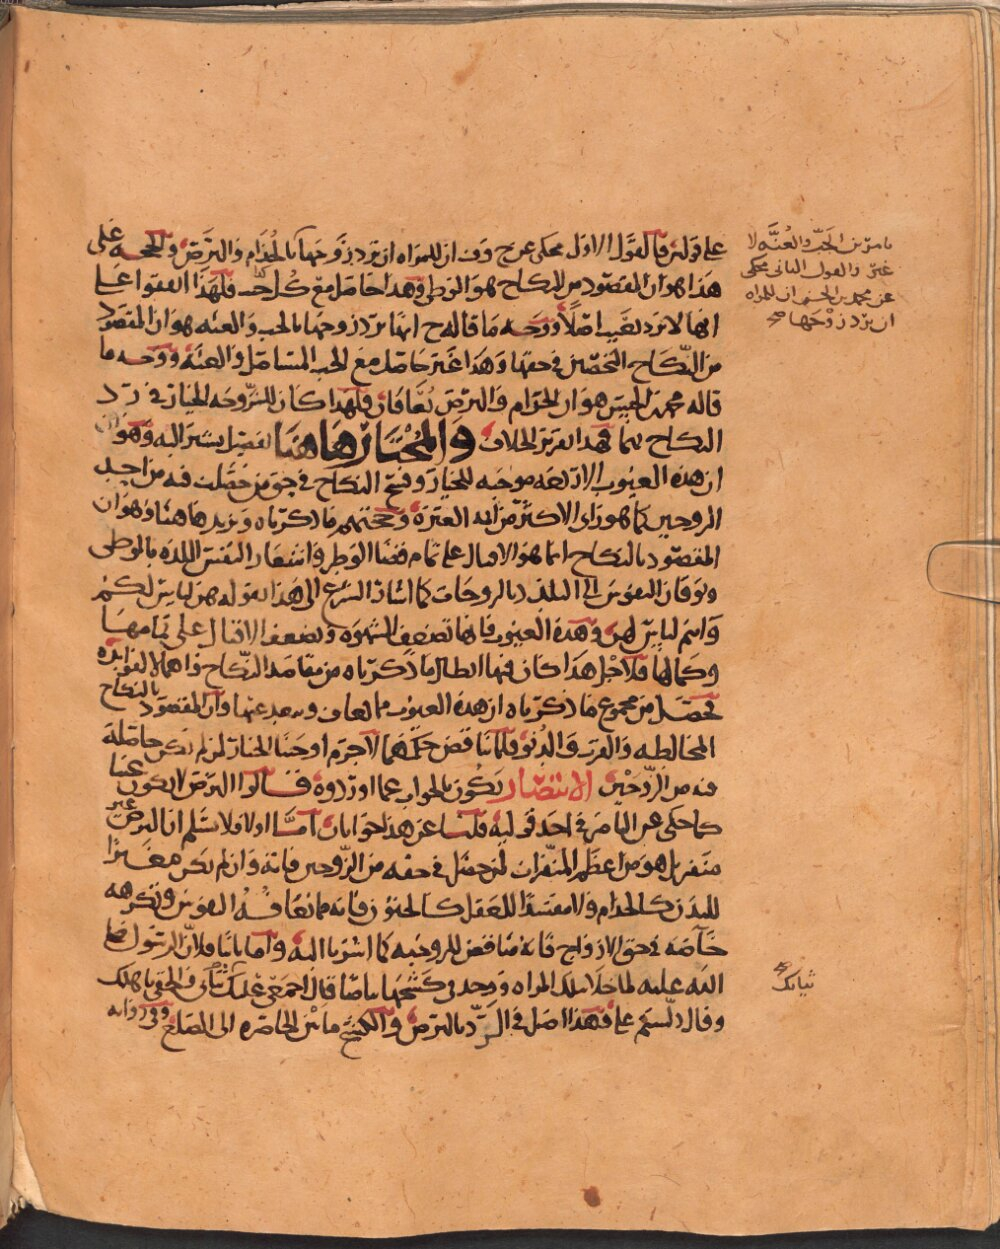 على قولين فالقول الاول محكى عن ح وف ان للمراه ان ترد زوجها بالجذام والبرص والحجه على
هذا هو ان المقصود من النكاح هو الوطى وهذا حاصل مع كل احد فلهذا اتفقوا على
انها لا ترد بعيب اصلا ووجه ما قاله ح انها ترد زوجها بالجب والعنه هو ان المقصود
من النكاح التحصين فى حقها وهذا غير حاصل مع الجب المستاصل والعنه ووجه ما
قاله محمد بن الحسن هو ان الجذام والبرص يعافان فلهذا كان للزوجه الخيار فى رد
النكاح بهما فهذا تقرير الخلاف والمختار ها هنا تفصيل نشير اليه وهو ان
ان هذه العيوب الاربعه موجبه للخيار وفسخ النكاح فى حق من حصلت فيه من احد
الزوجين كما هو راى الاكثر من ايمه العترة وحجتهم ما ذكرناه ونزيد ها هنا وهو ان
المقصود بالنكاح انما هو الاقبال على تمام قضا الوطر واستشعار النفس اللذه بالوطى
وتوقان النفوس الى التلذذ بالزوجات كما اشار الشرع الى هذا بقوله هن لباس لكم
وانتم لباس لهن وهذه العيوب فانها تضعف الشهوه وتضعف الاقبال على تمامها
وكمالها فلاجل هذا كان فيها ابطال ما ذكرناه من مقاصد النكاح واهمال لفوايده
فحصل من مجموع ما ذكرناه ان هذه العيوب مما يعاف ويبعد عنها وان المقصود بالنكاح
المخالطه والقرب والدنو فلما ناقض حكمهما لا جرم اوجبنا الخيار لمن لم تكن حاصلة
فيه من الزوجين الانتصار يكون بالجواب عما اوردوه قالوا البرص لا يكون عيبا
كما حكى عن الناصر فى احد قوليه قلنا عن هذا جوابان اما اولا فلا نسلم ان البرص غير
منفر بل هو من اعظم المنفرات لمن حصل فى حقه من الزوجين فانه وان لم يكن مغيرا
للبدن كالجذام ولا مفسدا للعقل كالجنون فانه مما تعافه النفوس وتكرهه
خاصه فى حق الازواج فانه مناقض للزوجيه كما اشرنا اليه واما ثانيا فلان الرسول صلى
الله عليه لما خلا بتلك المراه ووجد فى كشحها بياضا قال اجمعى عليك ثيابك والحقى باهلك
وقال دلستم على فهذا اصل فى الرد بالبرص والكشح ما بين الخاصره الى الضلع وفى روايه
بامرين الجب والعنه لا
غير والقول الثانى محكى
عن محمد بن الحسن ان للمراه
ان ترد زوجها صح
ثيابك